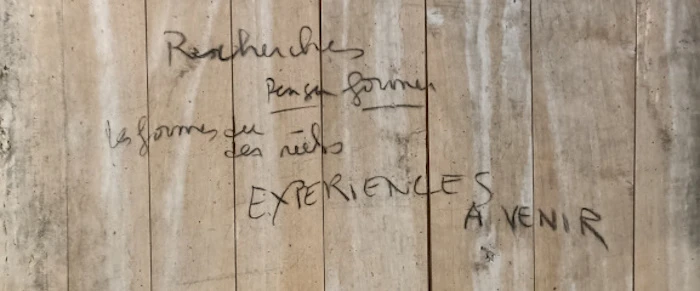 Recherches
Penser former
les formes du
des réels
EXPERIENCES
A VENIR